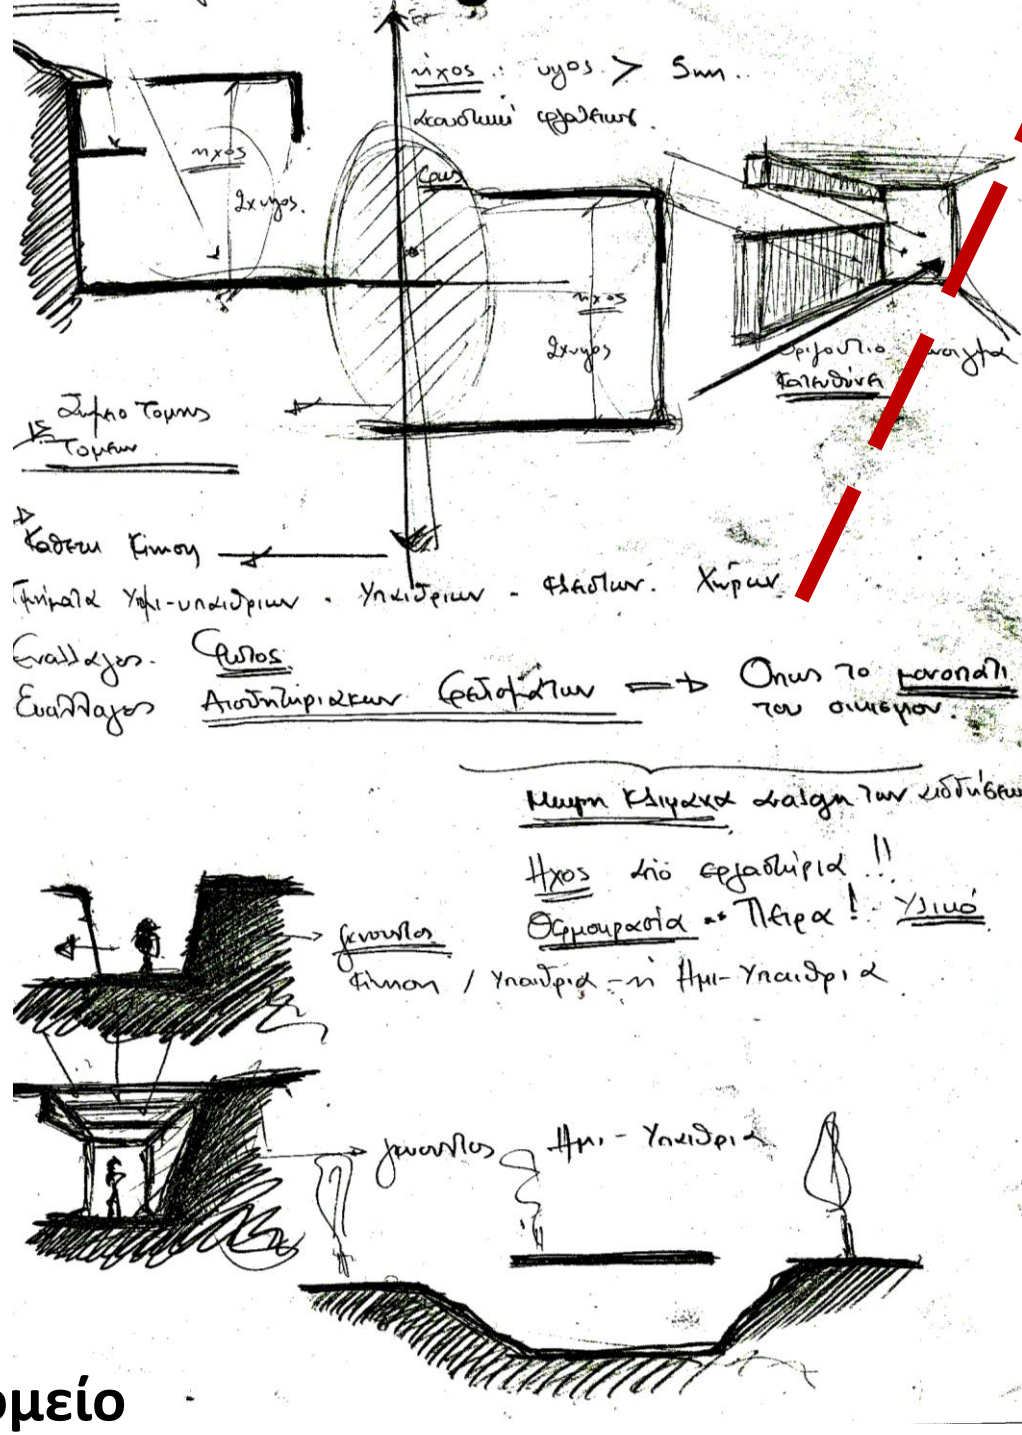 ήχος : υψος > 5μη.
ακουστικη εργαστειων.
ηχος
2χυψος.
Φως
ηχος
2χυψος
οριζοντιο ανοιγμα
κατευθυνει
Σημειο τομης
τομεων
Καθετη Κινηση
Τμηματα Ημι-υπαιθριων - Υπαιθριων - Κλειστων. Χωρων
Εναλλαγες. Φωτος
Εναλλαγες Αισθητηριακων Ερεθισμάτων ⇒ Οπως το μονοπατι
του οικισμου.
Μικρη Κλιμακα των αισθήσεω
Ηχος από εργαστήρια !!
Θερμοκρασία Πετρα! - Υλικό
γενουνται
Κινηση / Υπαιθρια - η Ημι-Υπαιθρια
Ημι - Υπαιθρια
ομείο